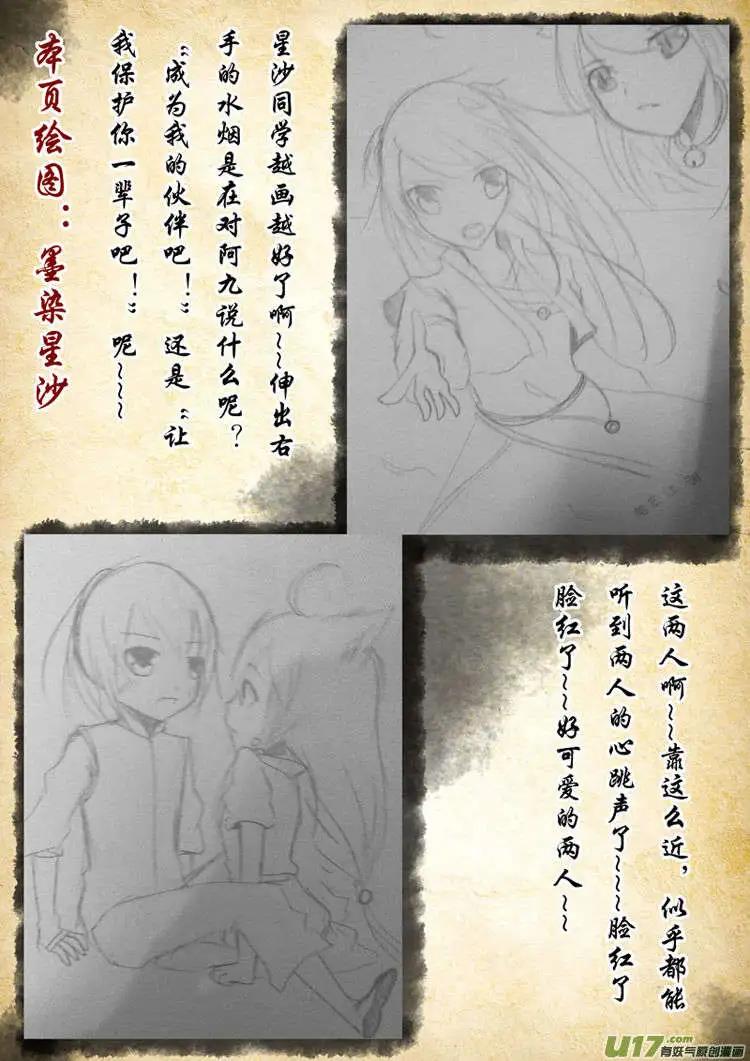 本页绘图：墨染星沙
星沙同学越画越好了啊~~伸出右
手的水烟是在对阿九说什么呢？
“成为我的伙伴吧！”还是“让
我保护你一辈子吧！”呢~~~
这两人啊~~靠这么近，似乎都能
听到两人的心跳声了~~~脸红了
脸红了~~好可爱的两人~~
U17.com
有妖气原创漫画